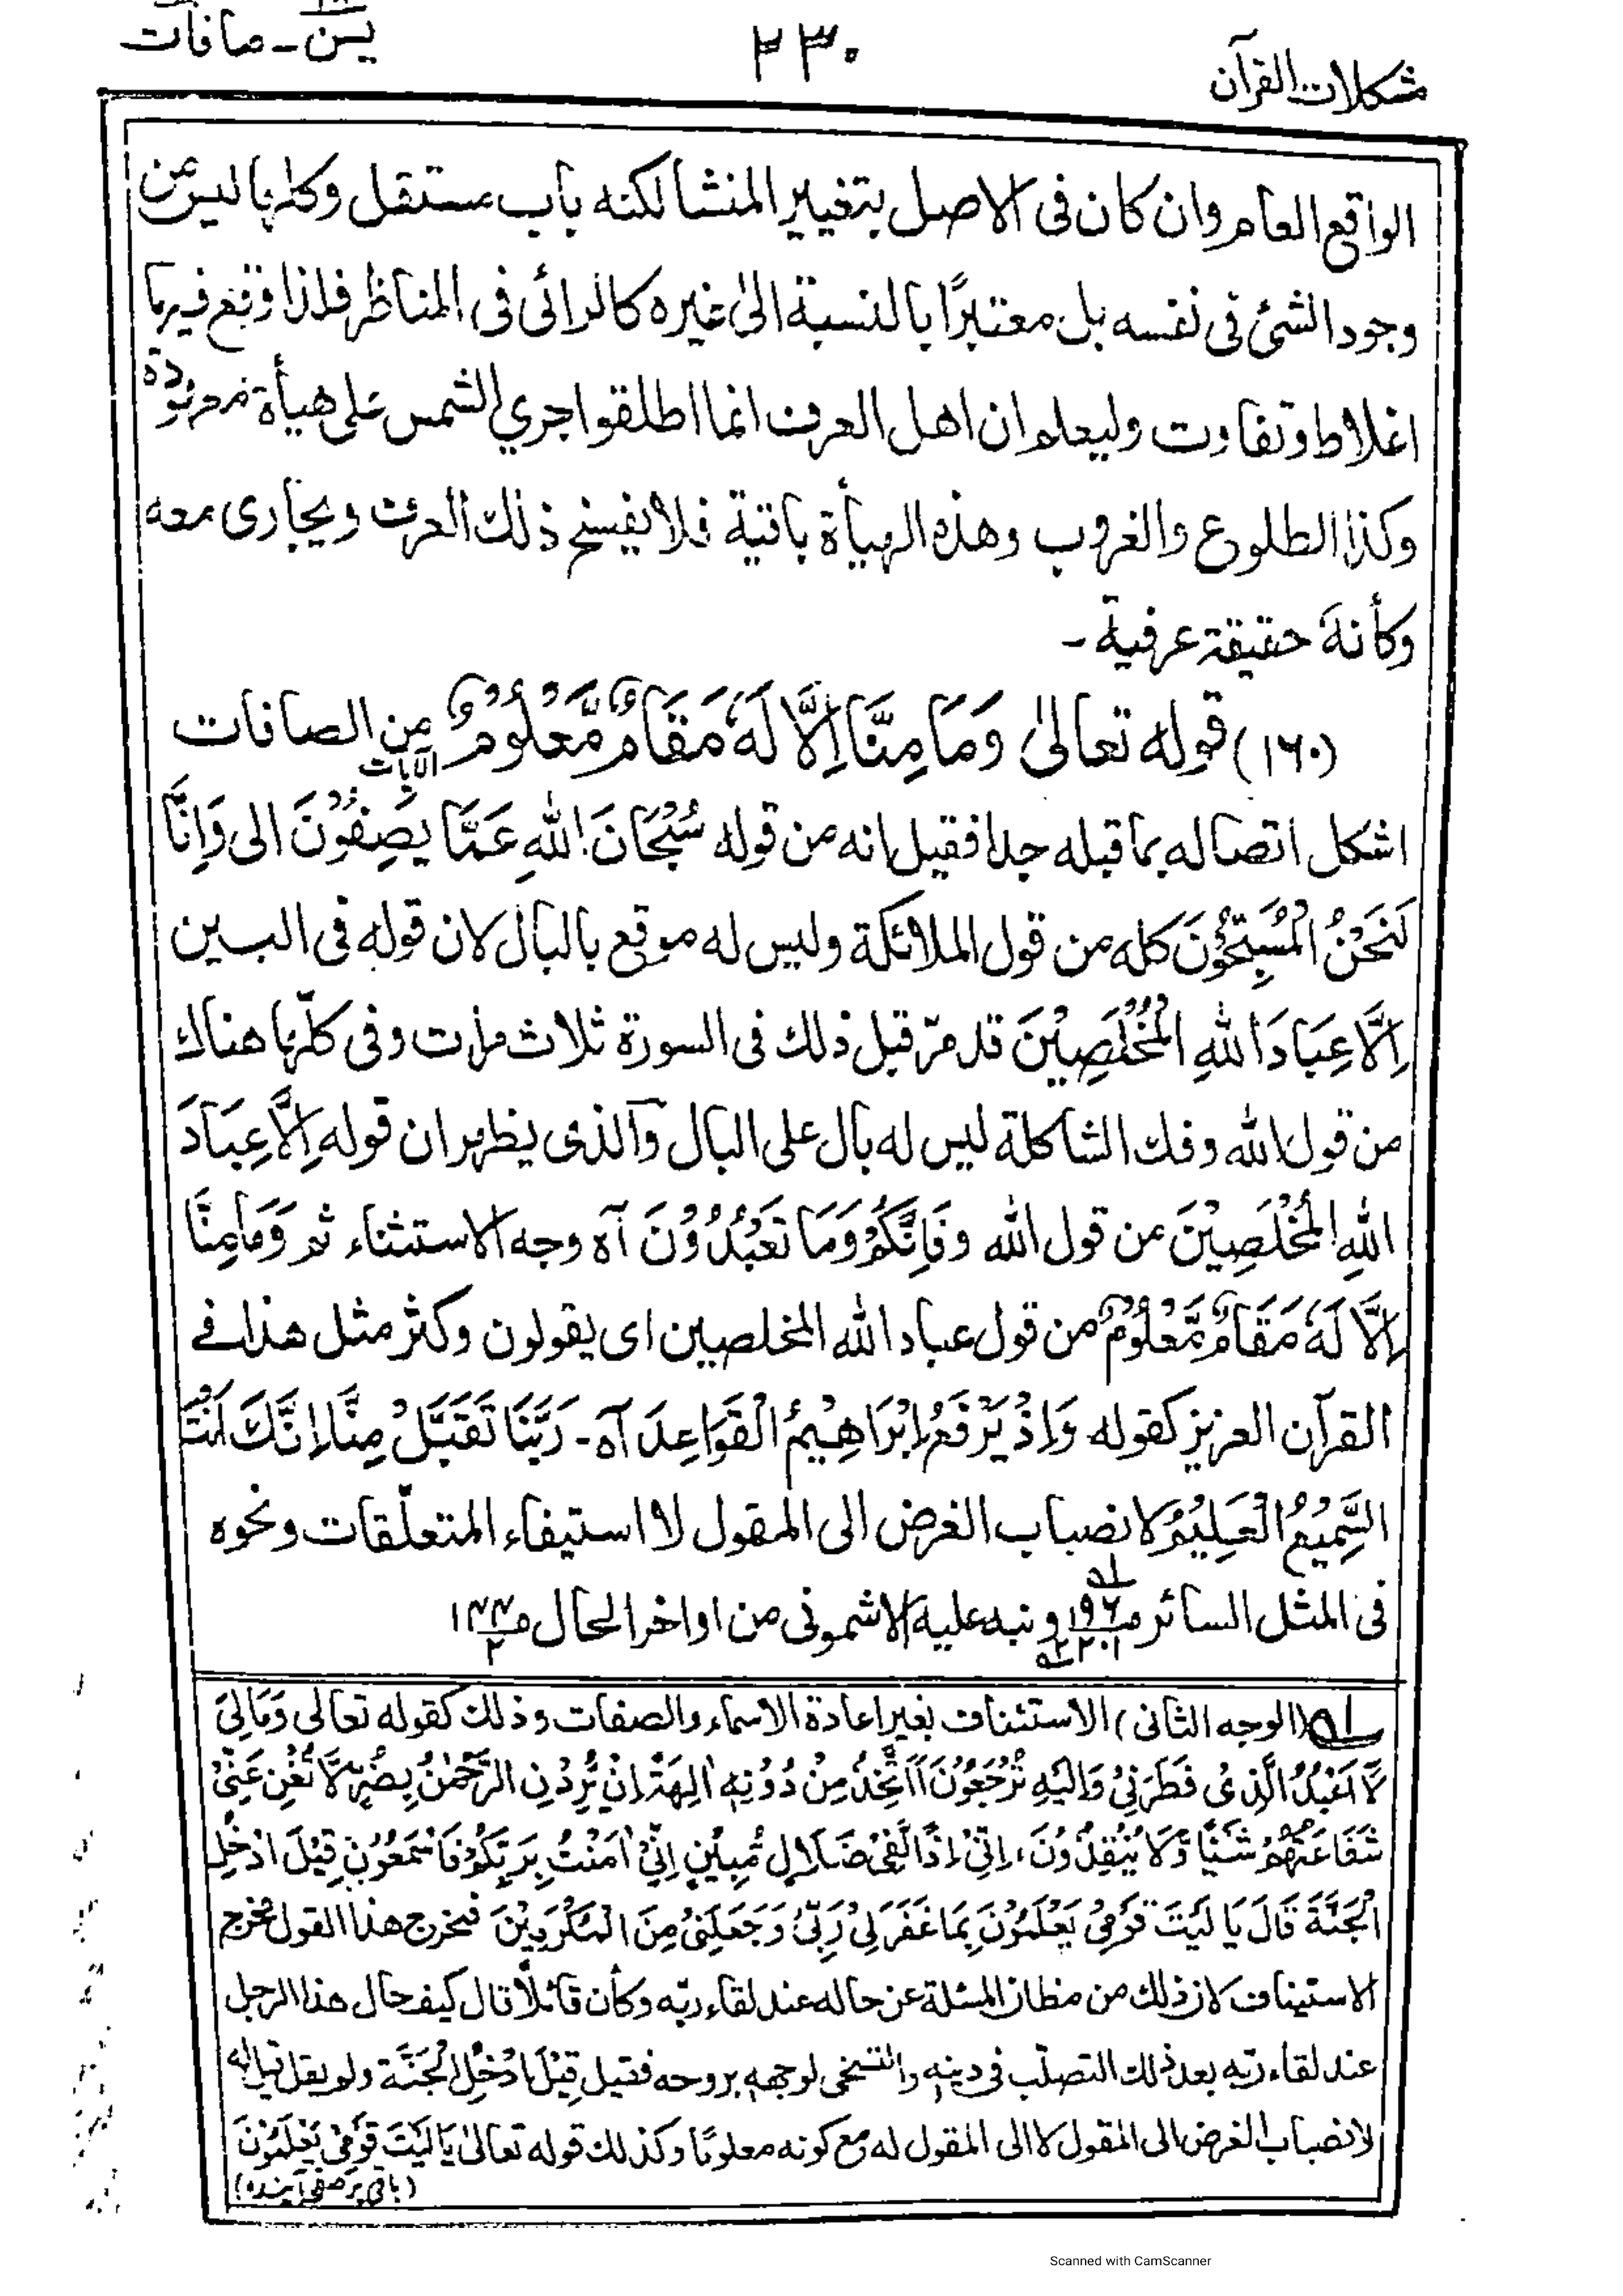 مشكلات القرآن
٢٣٠
يٰسٓ - صافات
الواقع العام وان كان فى الاصل بتغيير المنشا لكنه باب مستقل وكلها ليس عن
وجود الشئ فى نفسه بل معتبرًا بالنسبة الى غيره كالرائى فى المناظر فلذا وقع فيها
اغلاط وتفاوت وليعلم ان اهل العرف انما اطلقوا جري الشمس على هيأة معهودة
وكذا الطلوع والغروب وهذه الهيأة باقية فلا يفسخ ذلك العرف ويجارى معه
وكأنه حقيقة عرفية -
(١٦٠) قوله تعالىٰ وَمَا مِنَّا اِلَّا لَهٗ مَقَامٌ مَّعْلُوْمٌ الآيات من الصافات
اشكل اتصاله بما قبله جدا فقيل انه من قوله سُبْحَانَ اللهِ عَمَّا يَصِفُوْنَ الى وَاِنَّا
لَنَحْنُ الْمُسَبِّحُوْنَ كله من قول الملائكة وليس له موقع بالبال لان قوله فى البين
اِلَّا عِبَادَ اللهِ الْمُخْلَصِيْنَ قد مرّ قبل ذلك فى السورة ثلاث مرات وفى كلّها هناك
من قول الله وفك الشاكلة ليس له بال على البال والذى يظهر ان قوله اِلَّا عِبَادَ
اللهِ الْمُخْلَصِيْنَ من قول الله و فَاِنَّكُمْ وَمَا تَعْبُدُوْنَ آه وجه الاستثناء ثم وَمَا مِنَّا
اِلَّا لَهٗ مَقَامٌ مَّعْلُوْمٌ من قول عباد الله المخلصين اى يقولون وكثر مثل هذا فے
القرآن العزيز كقوله وَاِذْ يَرْفَعُ اِبْرَاهِيْمُ الْقَوَاعِدَ آه - رَبَّنَا تَقَبَّلْ مِنَّا اِنَّكَ اَنْتَ
السَّمِيْعُ الْعَلِيْمُ لانصباب الغرض الى المقول لا استيفاء المتعلّقات ونحوه
فى المثل السائر صـ١٩٦ و نبه عليه الاشمونى من اواخر الحال
لـه (الوجه الثانى) الاستئناف بغير اعادة الاسماء والصفات وذلك كقوله تعالى وَمَا لِيَ
لَا اَعْبُدُ الَّذِىْ فَطَرَنِىْ وَاِلَيْهِ تُرْجَعُوْنَ ءَاَتَّخِذُ مِنْ دُوْنِهٖ اٰلِهَةً اِنْ يُّرِدْنِ الرَّحْمٰنُ بِضُرٍّ لَّا تُغْنِ عَنِّىْ
شَفَاعَتُهُمْ شَيْئًا وَّلَا يُنْقِذُوْنَ، اِنِّىْ اِذًا لَّفِىْ ضَلَالٍ مُّبِيْنٍ اِنِّىْ اٰمَنْتُ بِرَبِّكُمْ فَاسْمَعُوْنِ قِيْلَ ادْخُلِ
الْجَنَّةَ قَالَ يَا لَيْتَ قَوْمِىْ يَعْلَمُوْنَ بِمَا غَفَرَ لِىْ رَبِّىْ وَجَعَلَنِىْ مِنَ الْمُكْرَمِيْنَ فمخرج هذا القول مخرج
الاستيناف لان ذلك من مظان المسئلة عن حاله عند لقاء ربّه وكأن قائلًا قال كيف حال هذا الرجل
عند لقاء ربّه بعد ذلك التصلّب فى دينه والتسخى لوجهه بروحه فقيل قِيْلَ ادْخُلِ الْجَنَّةَ ولم يقل قيل له
لانصباب الغرض الى المقول لا الى المقول له مع كونه معلومًا وكذلك قوله تعالىٰ يَا لَيْتَ قَوْمِىْ يَعْلَمُوْنَ
(باقى بر صفحہ آينده)
Scanned with CamScanner